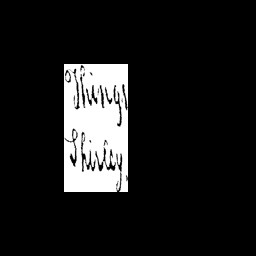 Things
Shirley,